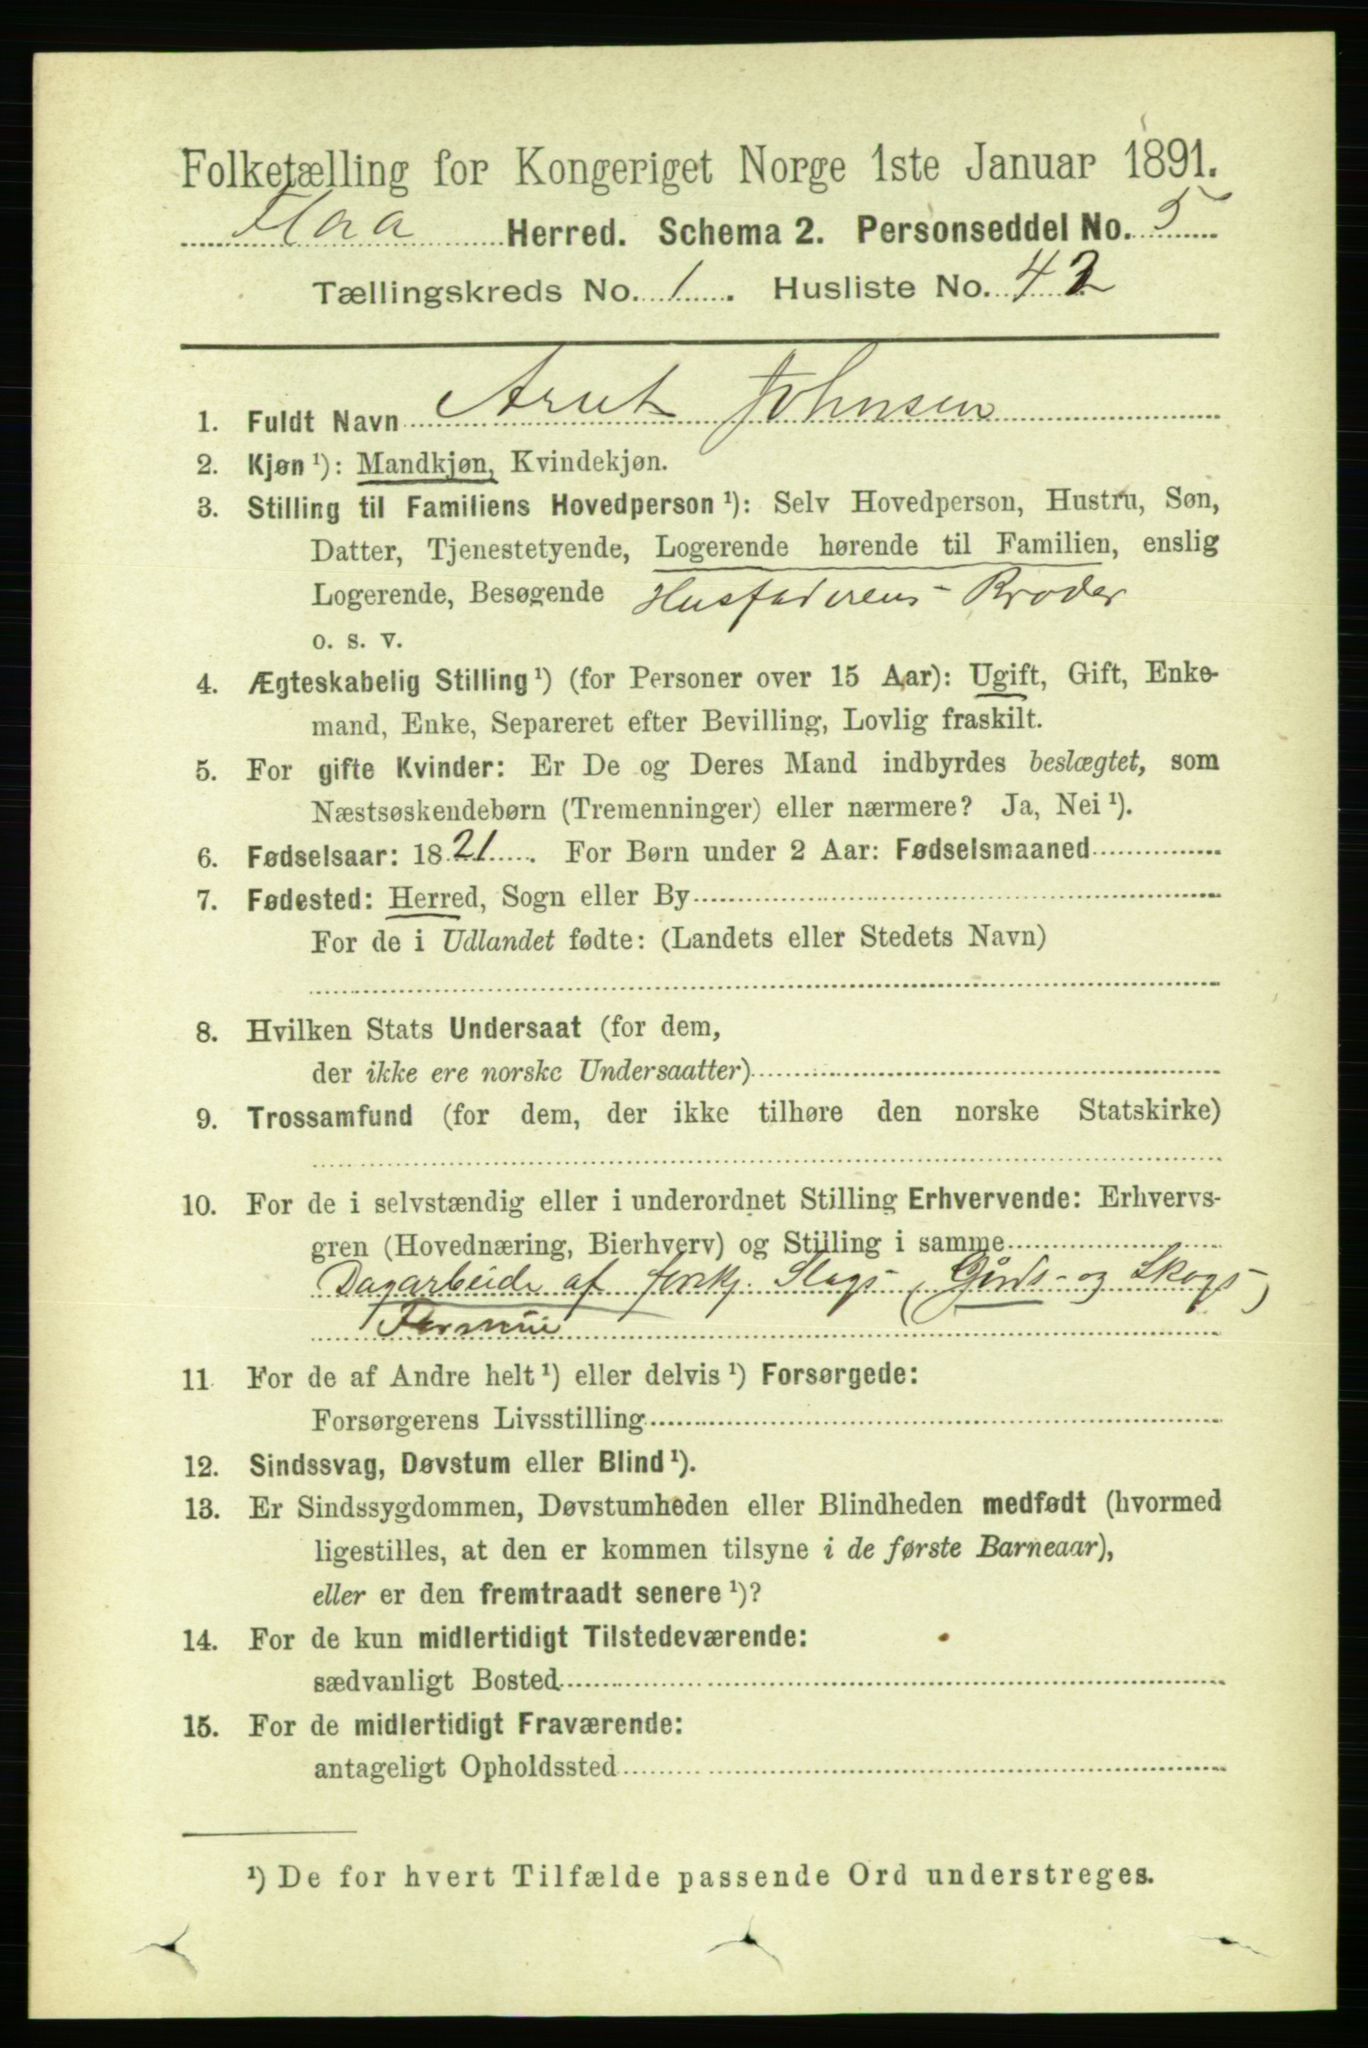 Folketælling for Kongeriget Norge 1ste Januar 1891.
Flaa Herred. Schema 2. Personseddel No. 5
Tællingskreds No. 1. Husliste No. 42
1. Fuldt Navn Arnt Johnsen
2. Kjøn ¹): Mandkjøn, Kvindekjøn.
3. Stilling til Familiens Hovedperson ¹): Selv Hovedperson, Hustru, Søn,
Datter, Tjenestetyende, Logerende hørende til Familien, enslig
Logerende, Besøgende Husfaderens Broder
o. s. v.
4. Ægteskabelig Stilling ¹) (for Personer over 15 Aar): Ugift, Gift, Enke-
mand, Enke, Separeret efter Bevilling, Lovlig fraskilt.
5. For gifte Kvinder: Er De og Deres Mand indbyrdes beslægtet, som
Næstsøskendebørn (Tremenninger) eller nærmere? Ja, Nei ¹).
6. Fødselsaar: 1821. For Børn under 2 Aar: Fødselsmaaned
7. Fødested: Herred, Sogn eller By
For de i Udlandet fødte: (Landets eller Stedets Navn)
8. Hvilken Stats Undersaat (for dem,
der ikke ere norske Undersaatter)
9. Trossamfund (for dem, der ikke tilhøre den norske Statskirke)
10. For de i selvstændig eller i underordnet Stilling Erhvervende: Erhvervs-
gren (Hovednæring, Bierhverv) og Stilling i samme
Dagarbeide af forskj. Slags (Gårds- og Skogs-)
11 For de af Andre helt ¹) eller delvis ¹) Forsørgede:
Forsørgerens Livsstilling
12. Sindssvag, Døvstum eller Blind ¹).
13. Er Sindssygdommen, Døvstumheden eller Blindheden medfødt (hvormed
ligestilles, at den er kommen tilsyne i de første Barneaar),
eller er den fremtraadt senere ¹)?
14. For de kun midlertidigt Tilstedeværende:
sædvanligt Bosted
15. For de midlertidigt Fraværende:
antageligt Opholdssted
¹) De for hvert Tilfælde passende Ord understreges.